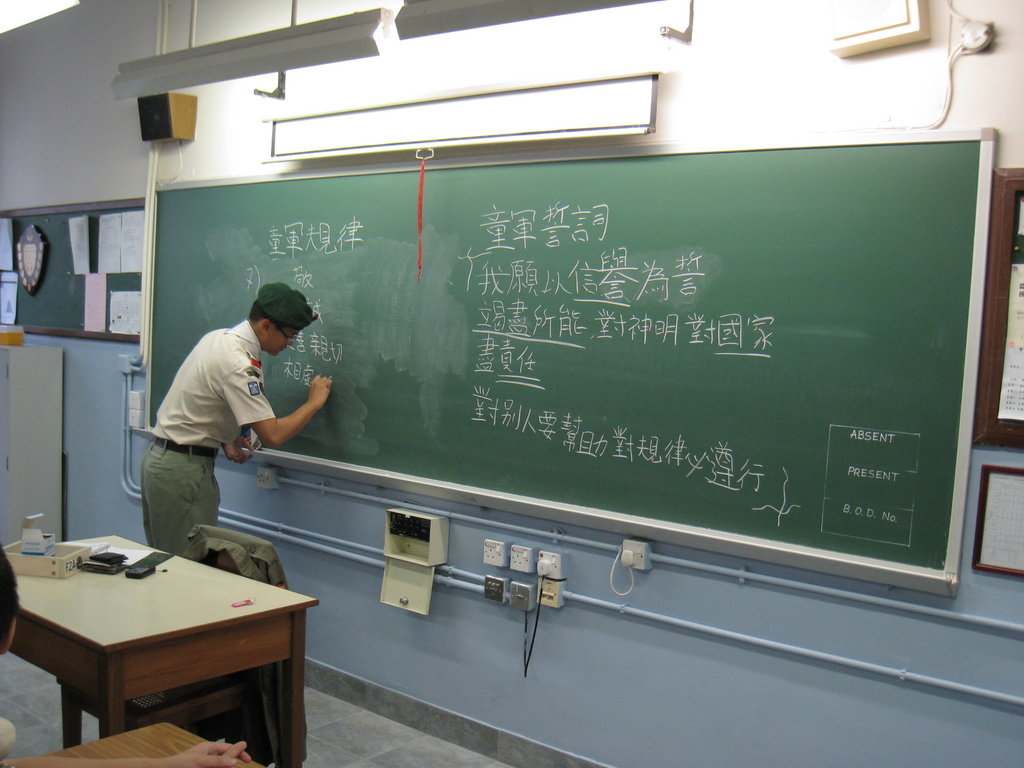 童軍規律
敬
親切
相處
童軍誓詞
我願以信譽為誓
竭盡所能對神明對國家
盡責任
對別人要幫助對規律必遵行
ABSENT
PRESENT
B.O.D. No.
F2A